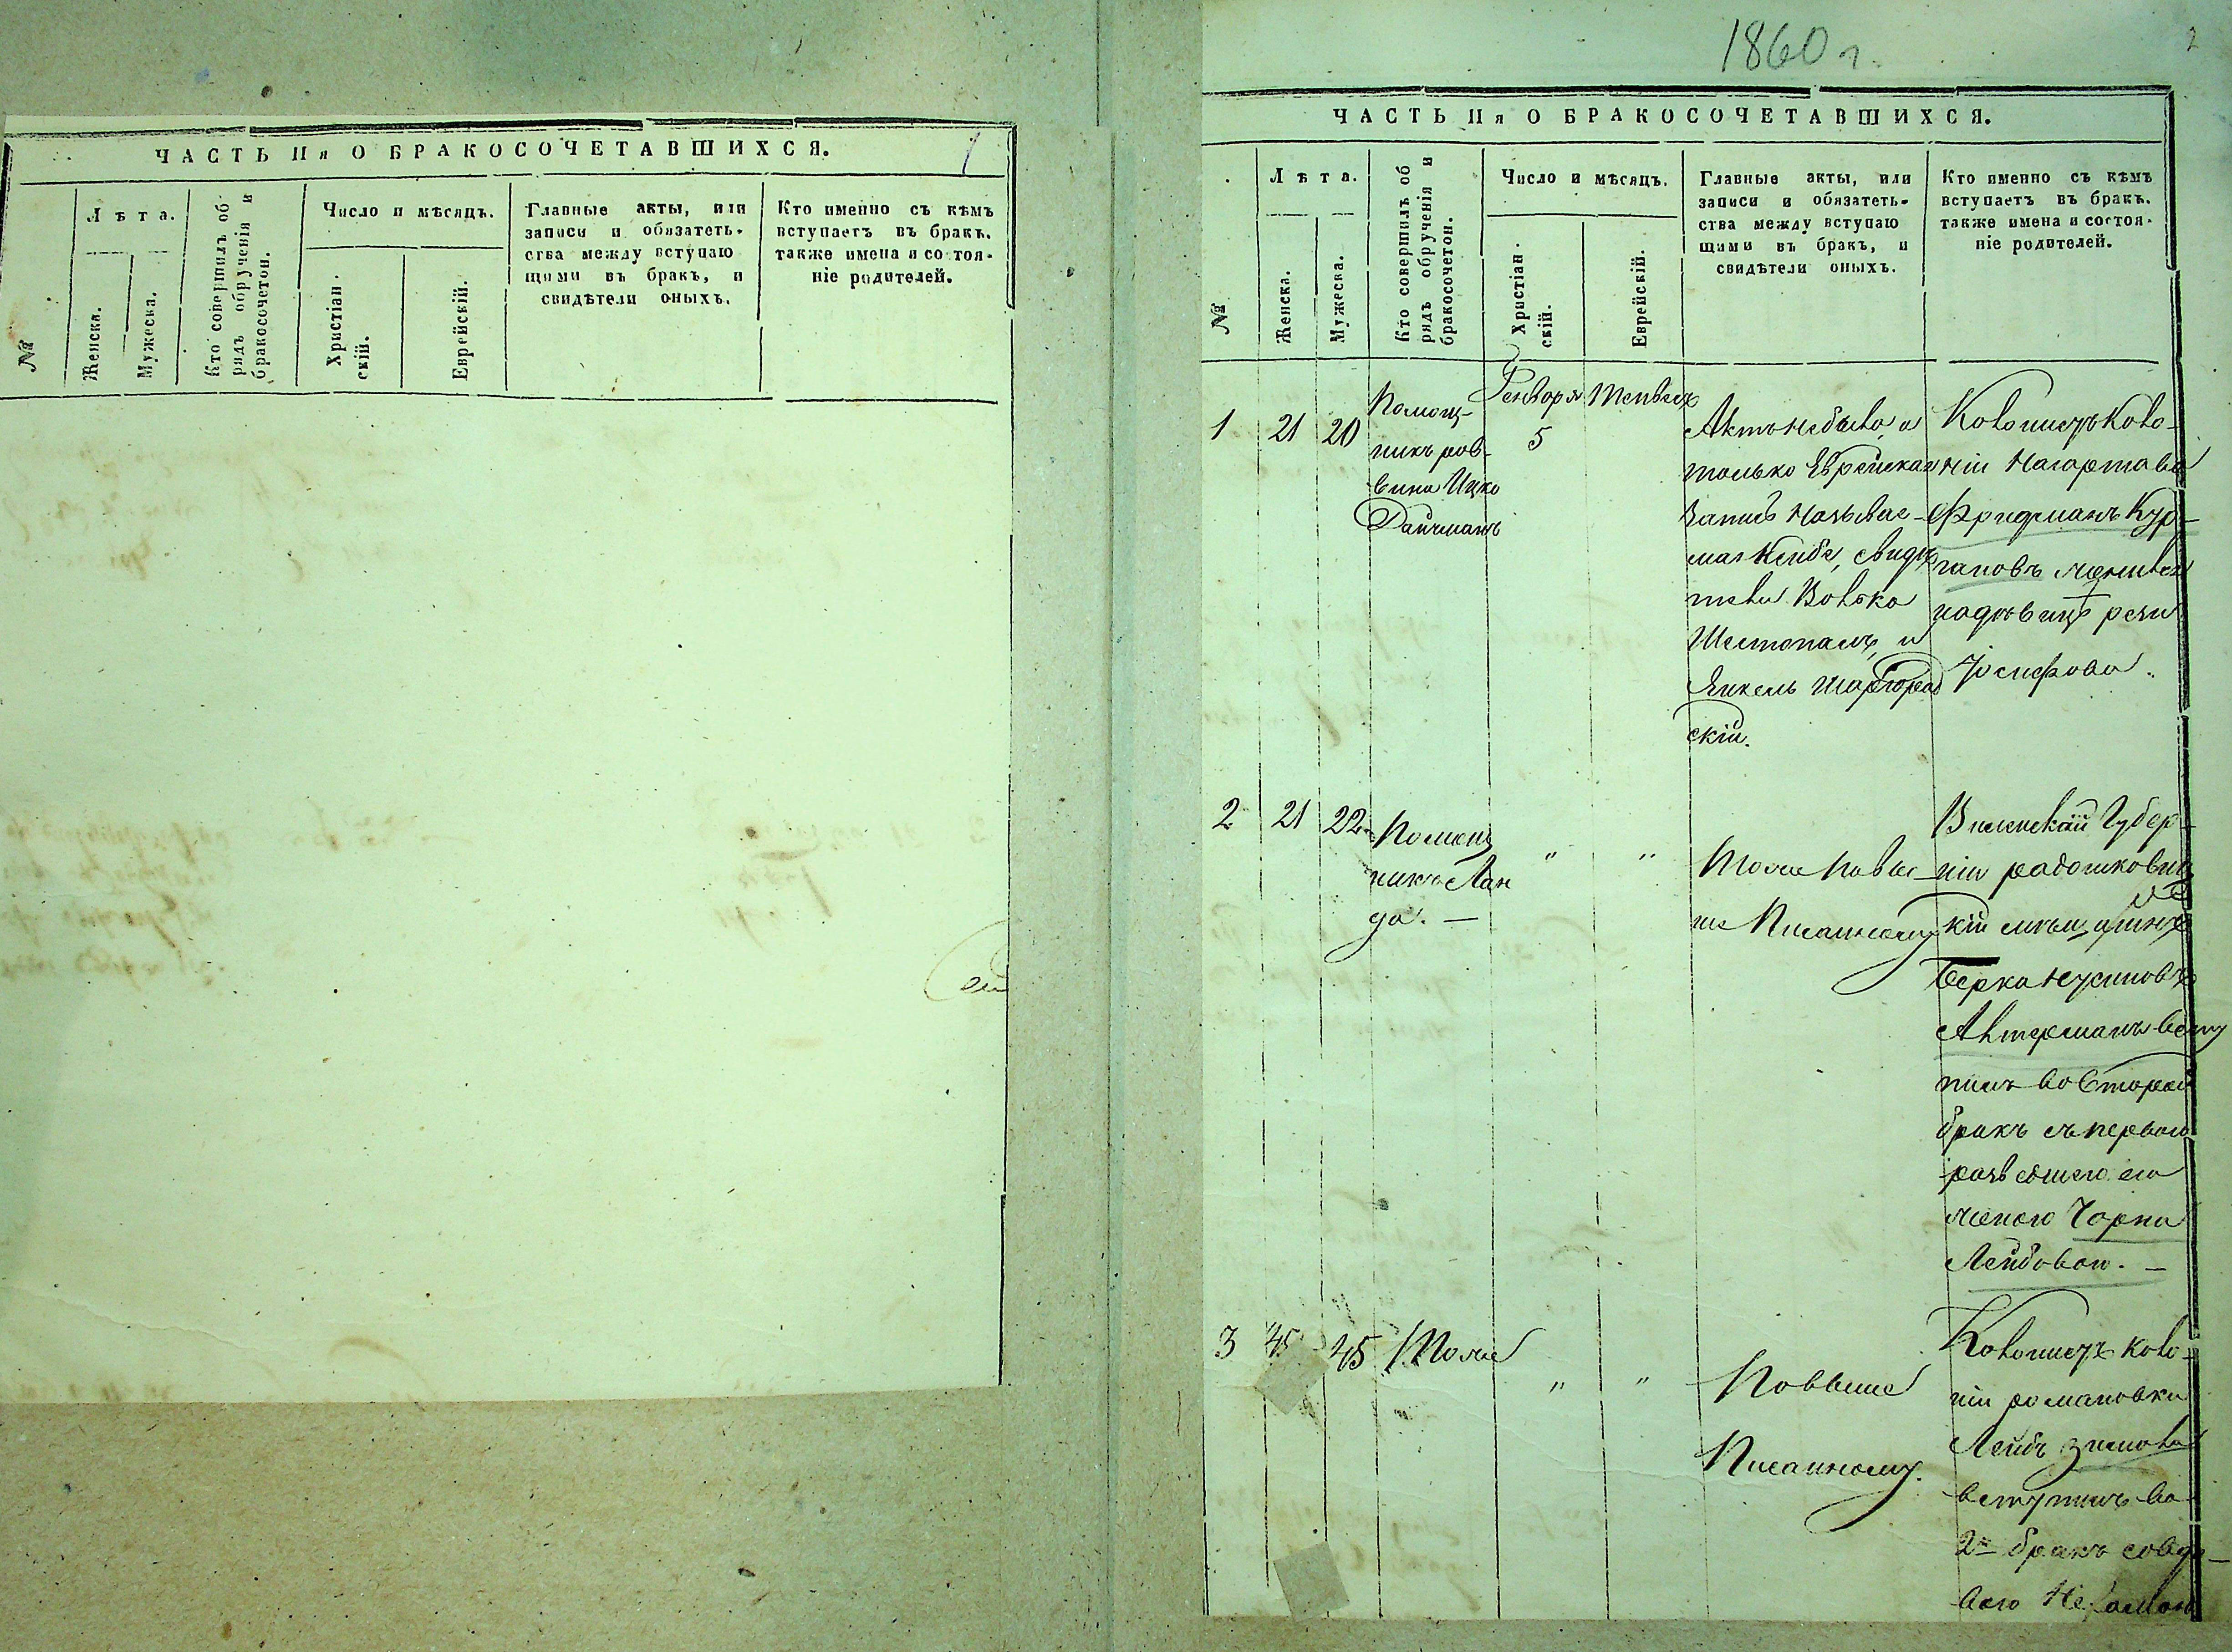 ЧАСТЬ IIя О БРАКОСОЧЕТАВШИХСЯ.
1
№
Лѣта.
Женска.
Мужеска.
Кто совершилъ об
рядъ обрученія и
бракосочетон.
Число и мѣсяцъ.
Христіан.
скій.
Еврейскій.
Главные акты, или
записи и обязатель-
ства между вступаю
щими въ бракъ, и
свидѣтели оныхъ.
Кто именно съ кѣмъ
вступаетъ въ бракъ.
также имена и состоя-
ніе родителей.
1860 г.
2
ЧАСТЬ IIя О БРАКОСОЧЕТАВШИХСЯ.
№
Лѣта.
Женска.
Мужеска.
Кто совершилъ об
рядъ обрученія и
бракосочетон.
Число и мѣсяцъ.
Христіан.
скій.
Еврейскій.
Главные акты, или
записи и обязатель-
ства между вступаю
щими въ бракъ, и
свидѣтели оныхъ.
Кто именно съ кѣмъ
вступаетъ въ бракъ.
также имена и состоя-
ніе родителей.
1
21
20
Помощ-
никъ рав-
вина Ицко
Дайчманъ
Генваря
5
Тейвесъ
Актъ небыло, а
только Еврейская
запись называе-
мая Ксибе, свидѣ
тели Волько
Шестопалъ, и
Янкель Шаргород
скій.
Колонистъ Коло-
ніи Нагартава
Фридманъ Кур-
гановъ женился
на дѣвицѣ рези
Іосифова.
2
21
22
Помощ
никъ Лан
да. —
"
"
Тоже повы-
ше Писанному
Виленскай Губер-
ніи радошкович
кій мѣщанинъ
Берка Нусиновъ
Алтерманъ всту
пилъ во второй
бракъ съ первою
разведшею его
женою Чарна
Лейбовою. —
3
45
45
Тоже
"
"
Повыше
Писанному.
Колонистъ коло-
ніи романовки
Лейбъ
вступилъ во
2й бракъ совдо-
вою